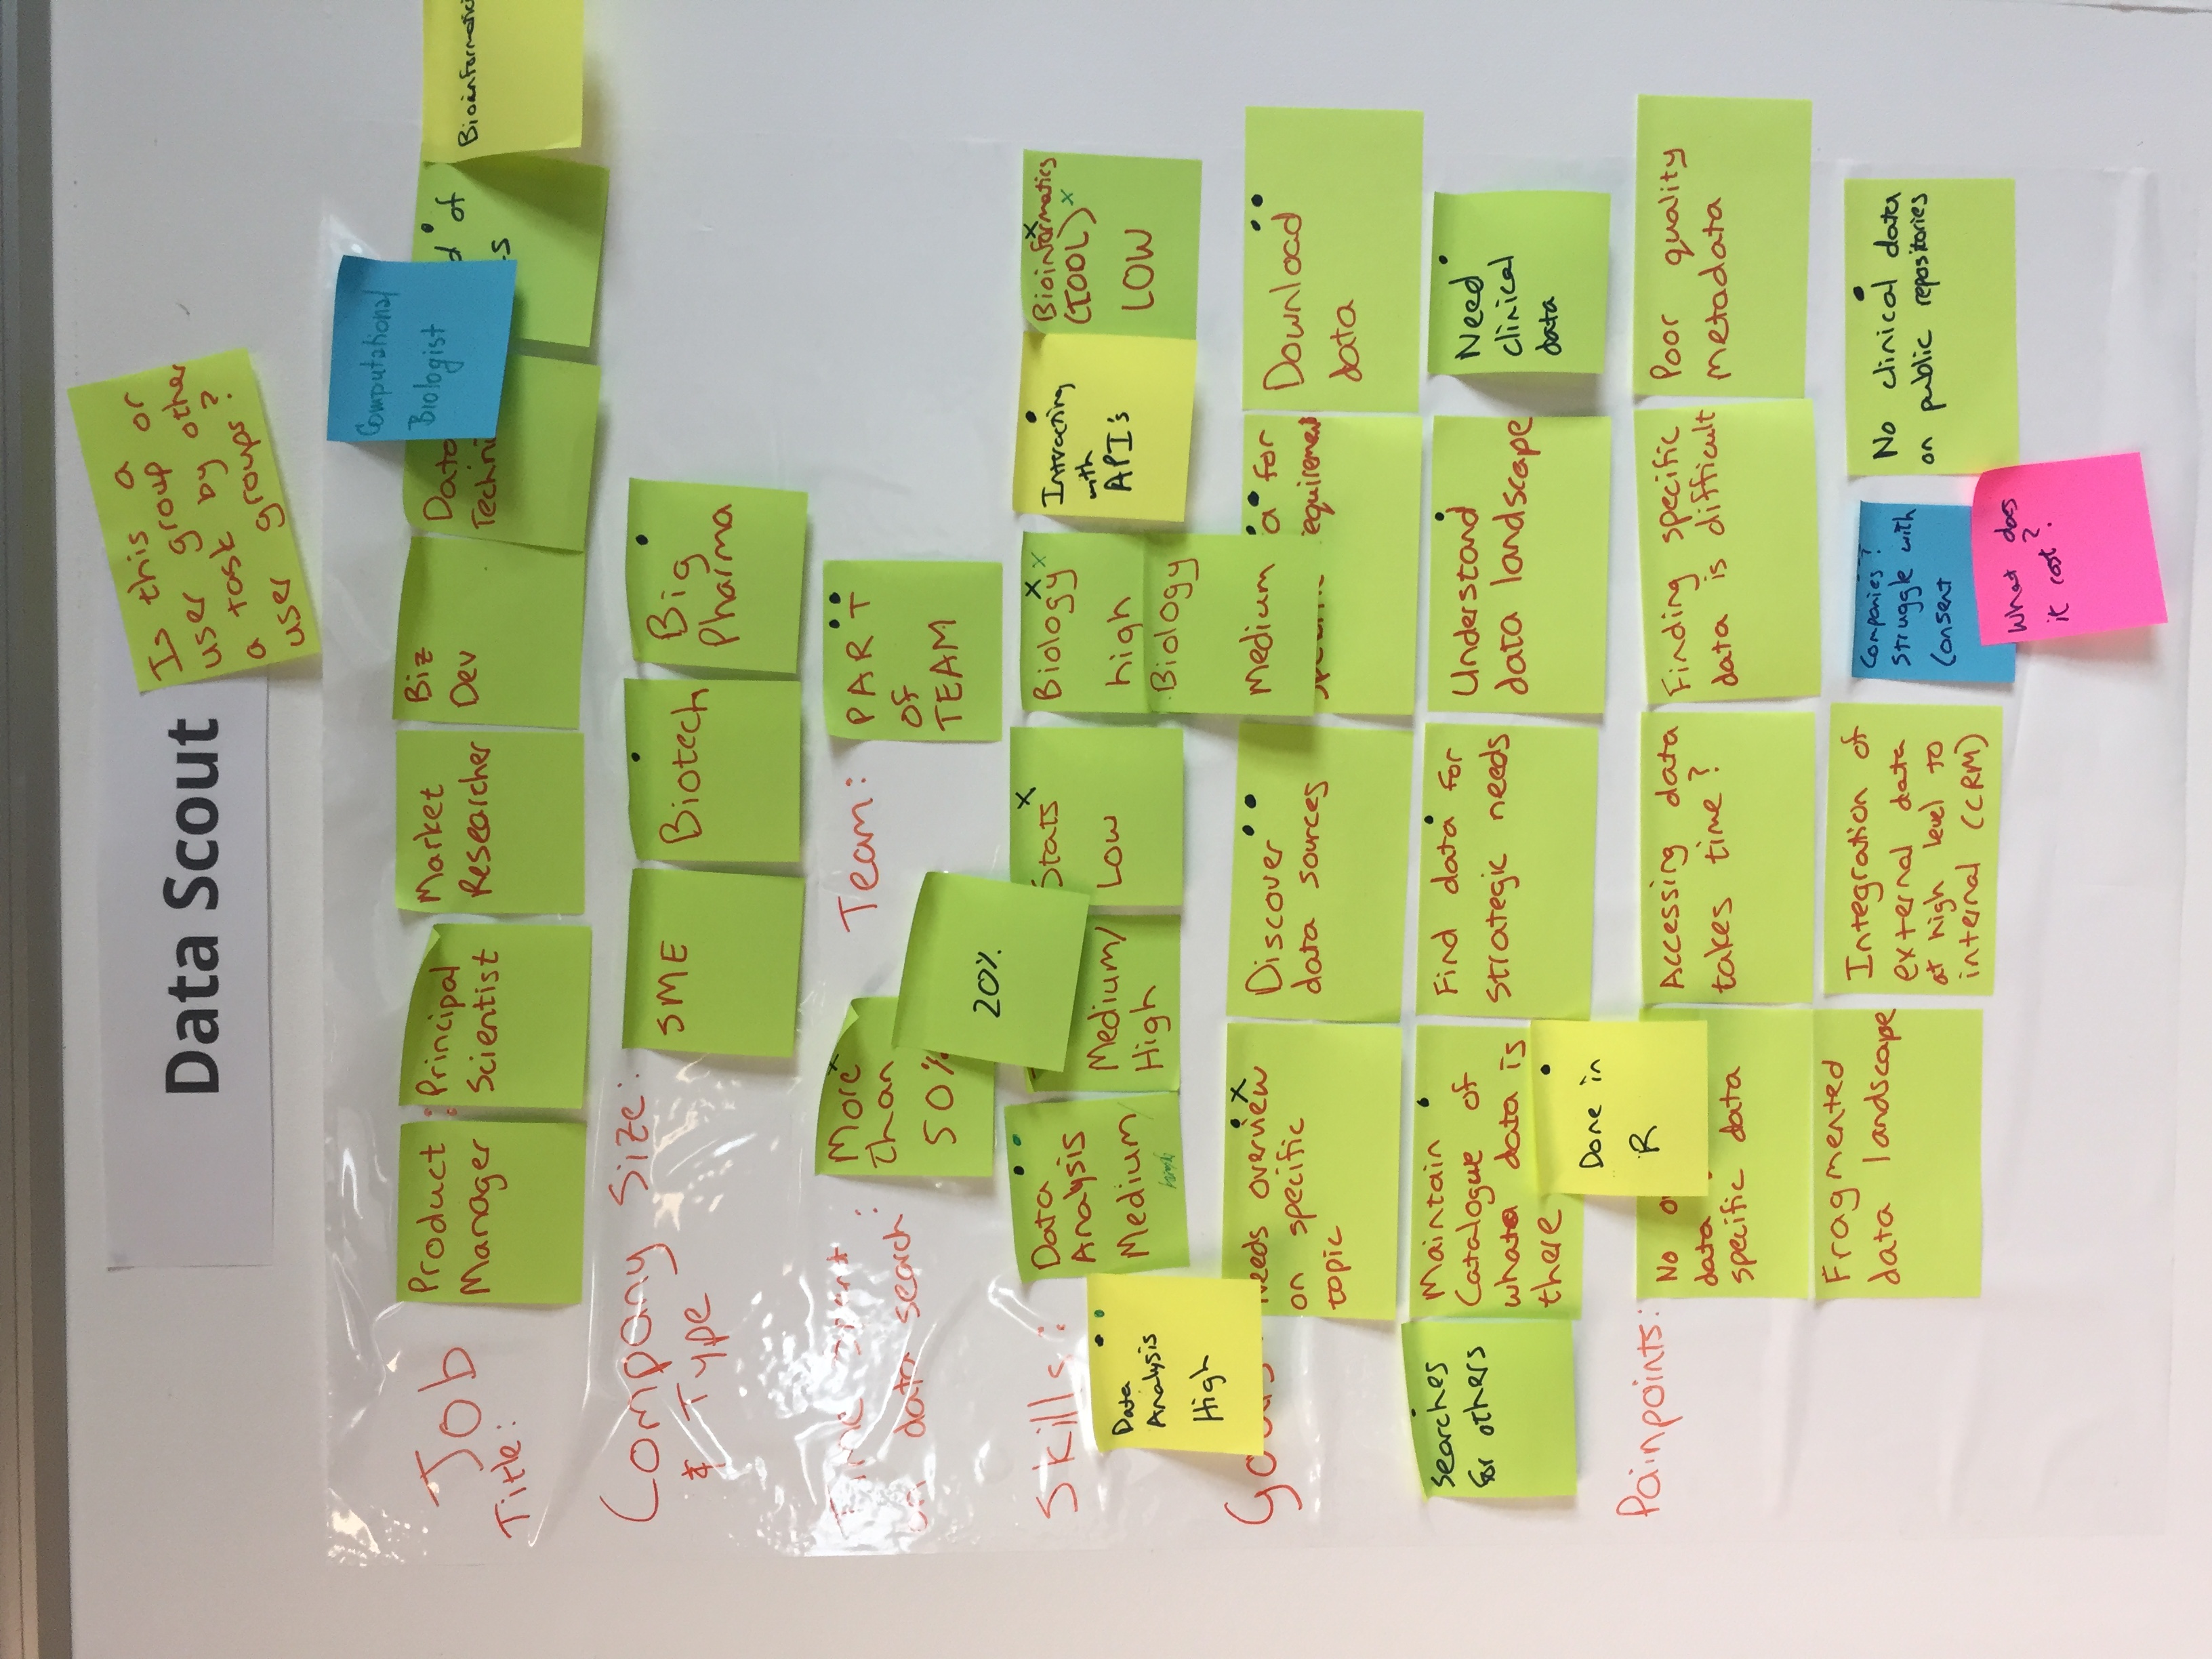 Data Scout
Is this a
user group or
a task by other
user groups?
Job
Title:
Product
Manager
Principal
Scientist
Market
Researcher
Biz
Dev
Data
Techni
Computational
Biologist
d of
s
Bioinformatici
Company Size:
& Type
SME
Biotech
Big
Pharma
Time spent
on data search:
More
than
50%
20%
Team:
PART
of
TEAM
Skills:
Data
Analysis
High
Data
Analysis
Medium
Medium/
High
Stats
Low
Biology
high
Biology
Medium
Interacting
with
API's
Bioinformatics
(TOOL)
LOW
Needs overview
on specific
topic
Discover
data sources
a for
specific equirement
Download
data
Searches
for others
Maintain
Catalogue of
what data is
there
Done in
R
Find data for
strategic needs
Understand
data landscape
Need
clinical
data
Painpoints:
No
data
specific data
Accessing data
takes time?
Finding specific
data is difficult
Poor quality
metadata
Fragmented
data landscape
Integration of
external data
at high level to
internal (CRM)
Companies?
struggle with
Consent
What does
it cost?
No clinical data
on public repositories